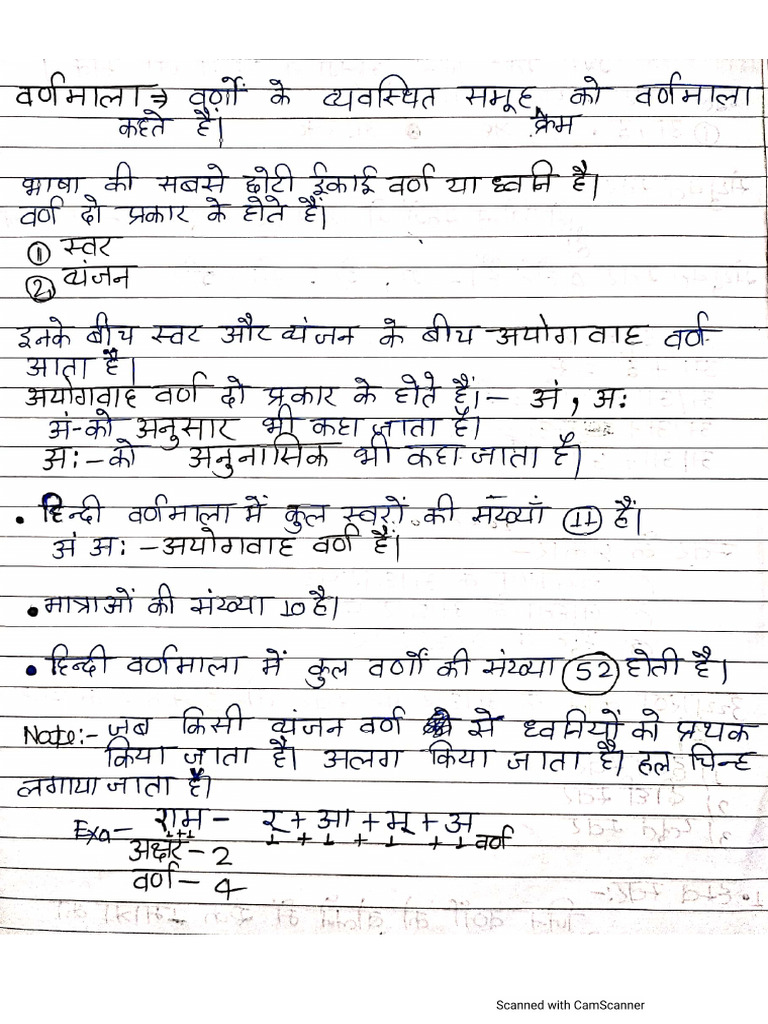 वर्णमाला ⇒ वर्णों के व्यवस्थित समूह को वर्णमाला
कहते हैं। क्रम
भाषा की सबसे छोटी ईकाई वर्ण या ध्वनि है।
वर्ण दो प्रकार के होते हैं।
① स्वर
② व्यंजन
इनके बीच स्वर और व्यंजन के बीच अयोगवाह वर्ण
आता है।
अयोगवाह वर्ण दो प्रकार के होते हैं।- अं, अः
अं-को अनुसार भी कहा जाता है।
अः-को अनुनासिक भी कहा जाता है।
• हिन्दी वर्णमाला में कुल स्वरों की संख्याँ 11 हैं।
अं अः -अयोगवाह वर्ण हैं।
• मात्राओं की संख्या 10 है।
• हिन्दी वर्णमाला में कुल वर्णों की संख्या 52 होती है।
Note:- जब किसी व्यंजन वर्ण से ध्वनियों को प्रथक
किया जाता है। अलग किया जाता है। हल चिन्ह
लगाया जाता है।
Exa- राम - र् + आ + म् + अ
1+1 1 + 1 + 1 + 1 वर्ण
अक्षर - 2
वर्ण - 4
Scanned with CamScanner